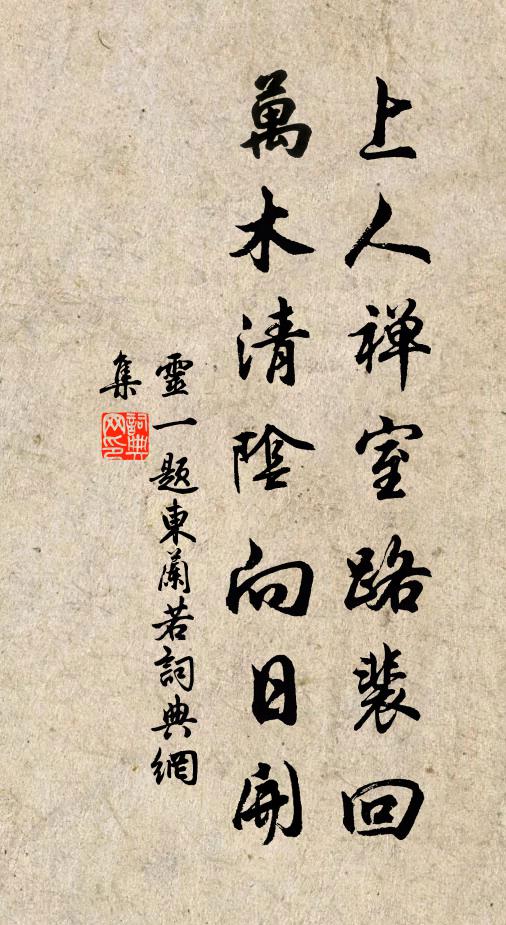 上人禅室路裴回
萬木清陰向日開
靈一題東蘭若詞典網
集
詞典
网印